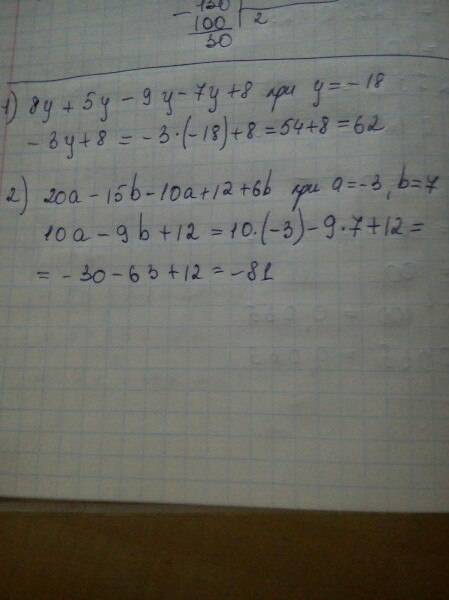 - 130 | 
100 | 2
30
1) 8y + 5y - 9y - 7y + 8 при y = -18
-3y + 8 = -3·(-18) + 8 = 54 + 8 = 62
2) 20a - 15b - 10a + 12 + 6b при a = -3, b = 7
10a - 9b + 12 = 10·(-3) - 9·7 + 12 =
= -30 - 63 + 12 = -81